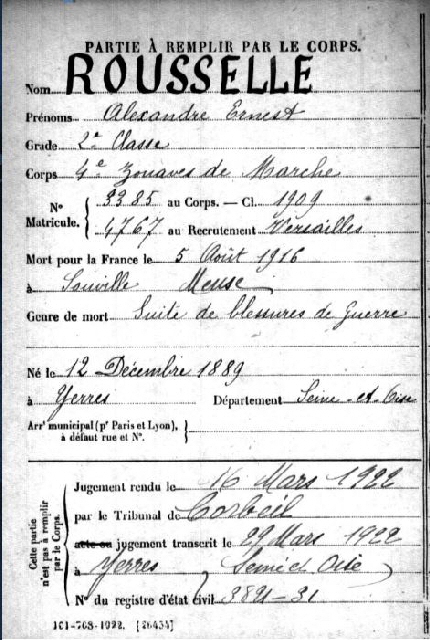 PARTIE À REMPLIR PAR LE CORPS.
Nom ROUSSELLE
Prénoms Alexandre Ernest
Grade 2e Classe
Corps 4e Zouaves de Marche
No Matricule. { 3385 au Corps. — Cl. 1909
4767 au Recrutement Versailles
Mort pour la France le 5 Août 1916
à Souville Meuse
Genre de mort Suite de blessures de Guerre
Né le 12 Décembre 1889
à Yerres Département Seine-et-Oise
Arrt municipal (pr Paris et Lyon), à défaut rue et No. }
Cette partie n'est pas à remplir par le Corps.
Jugement rendu le 16 Mars 1922
par le Tribunal de Corbeil
acte ou jugement transcrit le 29 Mars 1922
à Yerres Seine et Oise
No du registre d'état civil 3821-31
101-708-1922. [26434]